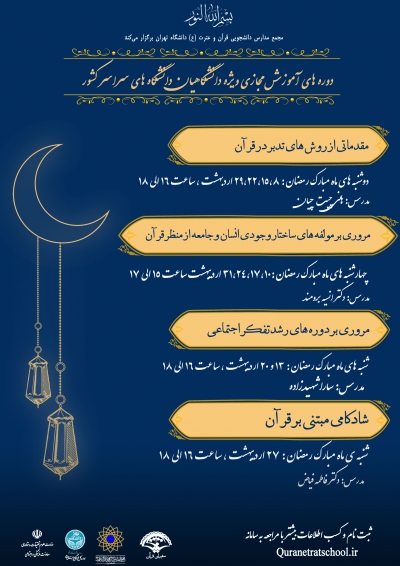 بسم الله النور
مجمع مدارس دانشجویی قرآن و عترت (ع) دانشگاه تهران برگزار می‌کند
دوره های آموزش مجازی ویژه دانشگاهیان دانشگاه های سراسر کشور
مقدماتی از روش های تدبر در قرآن
دوشنبه های ماه مبارک رمضان: ۸، ۱۵، ۲۲، ۲۹ اردیبهشت، ساعت ۱۶ الی ۱۸
مدرس: هانی چیت چیان
مروری بر مولفه های ساختار وجودی انسان و جامعه از منظر قرآن
چهارشنبه های ماه مبارک رمضان: ۱۰، ۱۷، ۲۴، ۳۱ اردیبهشت ساعت ۱۵ الی ۱۷
مدرس: دکتر انسیه برومند
مروری بر دوره های رشد تفکر اجتماعی
شنبه های ماه مبارک رمضان: ۱۳ و ۲۰ اردیبهشت، ساعت ۱۶ الی ۱۸
مدرس: سارا شهیدزاده
شادکامی مبتنی بر قرآن
شنبه ی ماه مبارک رمضان: ۲۷ اردیبهشت، ساعت ۱۶ الی ۱۸
مدرس: دکتر فاطمه فیاض
ثبت نام و کسب اطلاعات بیشتر با مراجعه به سامانه
Quranetratschool.ir